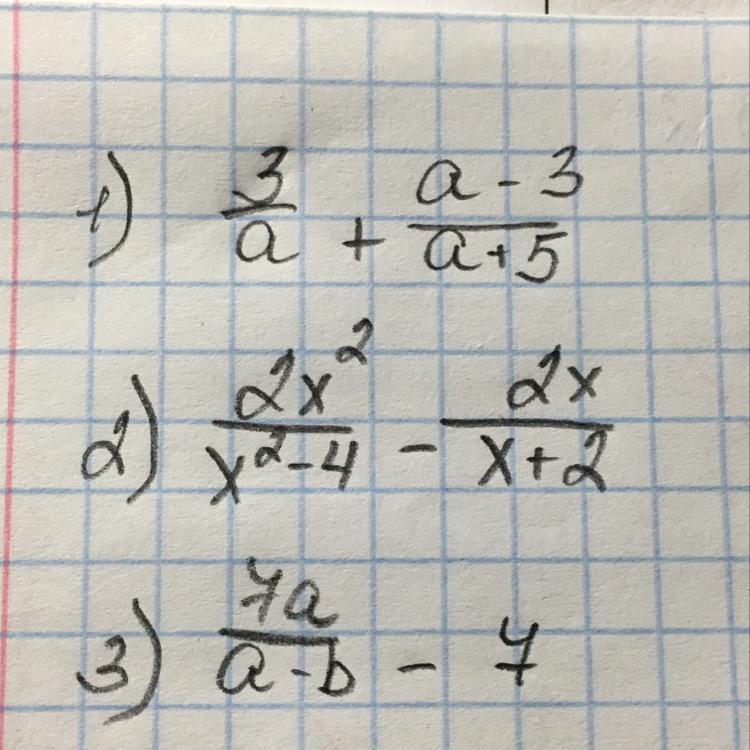 1) 3/a + (a - 3)/(a + 5)
2) 2x²/(x² - 4) - 2x/(x + 2)
3) 7a/(a - b) - 7